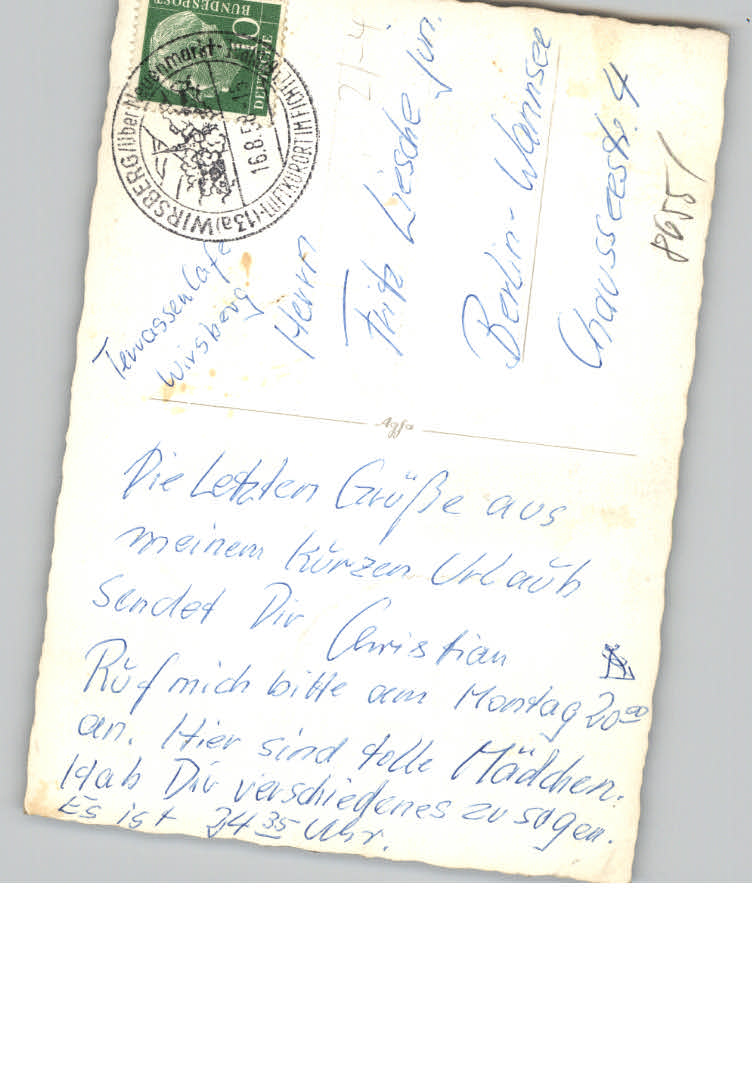 DEUTSCHE
BUNDESPOST
10
(13a) WIRSBERG / über Neuenmarkt-
LUFTKURORT IM FICHTEL
16.8.58
21-4
Terrassencafe
Wirsberg
Herrn
Fritz Liesche jun.
Berlin-Wannsee
Chausseestr. 4
86551
Agfa
Die Letzten Grüße aus
meinem kurzen Urlaub
sendet Dir Christian
Ruf mich bitte am Montag 20⁰⁰
an. Hier sind tolle Mädchen.
Hab Dir verschiedenes zu sagen.
Es ist 24³⁵ Uhr.